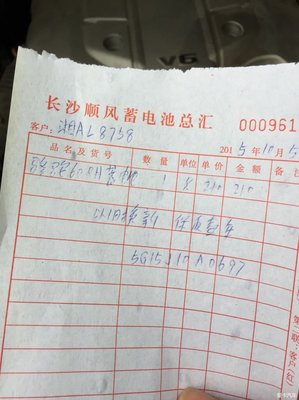 V6
长沙顺风蓄电池总汇
000961
客户：湘AL8758
2015年10月5
品名及货号 数量 单位 单价 金额 备注
1 210 210
以旧换新 保质壹年
客户(红)